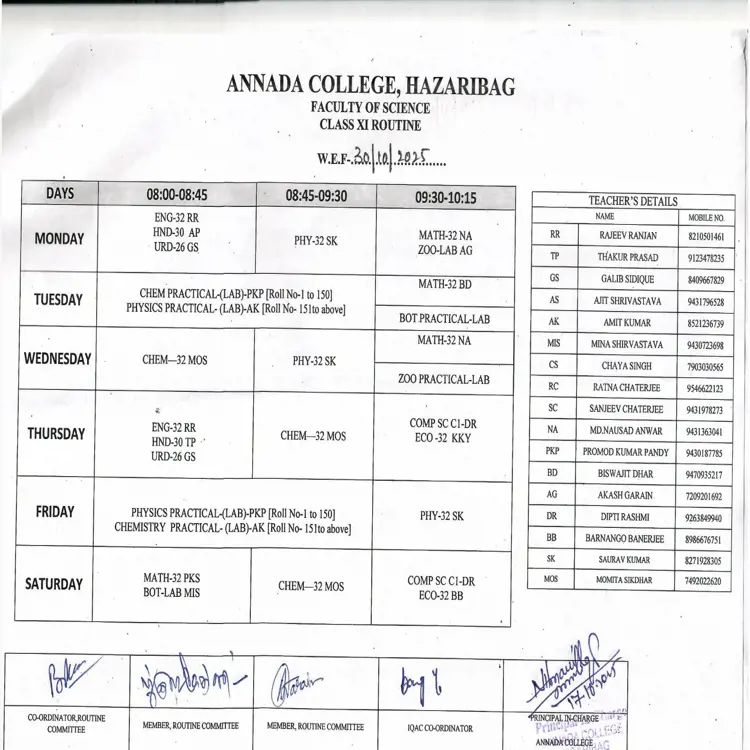 ANNADA COLLEGE, HAZARIBAG
FACULTY OF SCIENCE
CLASS XI ROUTINE
W.E.F-.30/10/2025......
DAYS 08:00-08:45 08:45-09:30 09:30-10:15
MONDAY
ENG-32 RR
HND-30 AP
URD-26 GS
PHY-32 SK
MATH-32 NA
ZOO-LAB AG
TUESDAY
CHEM PRACTICAL-(LAB)-PKP [Roll No-1 to 150]
PHYSICS PRACTICAL- (LAB)-AK [Roll No- 151to above]
MATH-32 BD
BOT.PRACTICAL-LAB
WEDNESDAY
CHEM—32 MOS
PHY-32 SK
MATH-32 NA
ZOO PRACTICAL-LAB
THURSDAY
ENG-32 RR
HND-30 TP
URD-26 GS
CHEM—32 MOS
COMP SC C1-DR
ECO -32 KKY
FRIDAY
PHYSICS PRACTICAL-(LAB)-PKP [Roll No-1 to 150]
CHEMISTRY PRACTICAL- (LAB)-AK [Roll No- 151to above]
PHY-32 SK
SATURDAY
MATH-32 PKS
BOT-LAB MIS
CHEM—32 MOS
COMP SC C1-DR
ECO-32 BB
TEACHER'S DETAILS
NAME MOBILE NO.
RR RAJEEV RANJAN 8210501461
TP THAKUR PRASAD 9123478235
GS GALIB SIDIQUE 8409667829
AS AJIT SHRIVASTAVA 9431796528
AK AMIT KUMAR 8521236739
MIS MINA SHIRVASTAVA 9430723698
CS CHAYA SINGH 7903030565
RC RATNA CHATERJEE 9546622123
SC SANJEEV CHATERJEE 9431978273
NA MD.NAUSAD ANWAR 9431363041
PKP PROMOD KUMAR PANDY 9430187785
BD BISWAJIT DHAR 9470935217
AG AKASH GARAIN 7209201692
DR DIPTI RASHMI 9263849940
BB BARNANGO BANERJEE 8986676751
SK SAURAV KUMAR 8271928305
MOS MOMITA SIKDHAR 7492022620
CO-ORDINATOR,ROUTINE
COMMITTEE
MEMBER, ROUTINE COMMITTEE
MEMBER, ROUTINE COMMITTEE
IQAC CO-ORDINATOR
PRINCIPAL IN-CHARGE
ANNADA COLLEGE